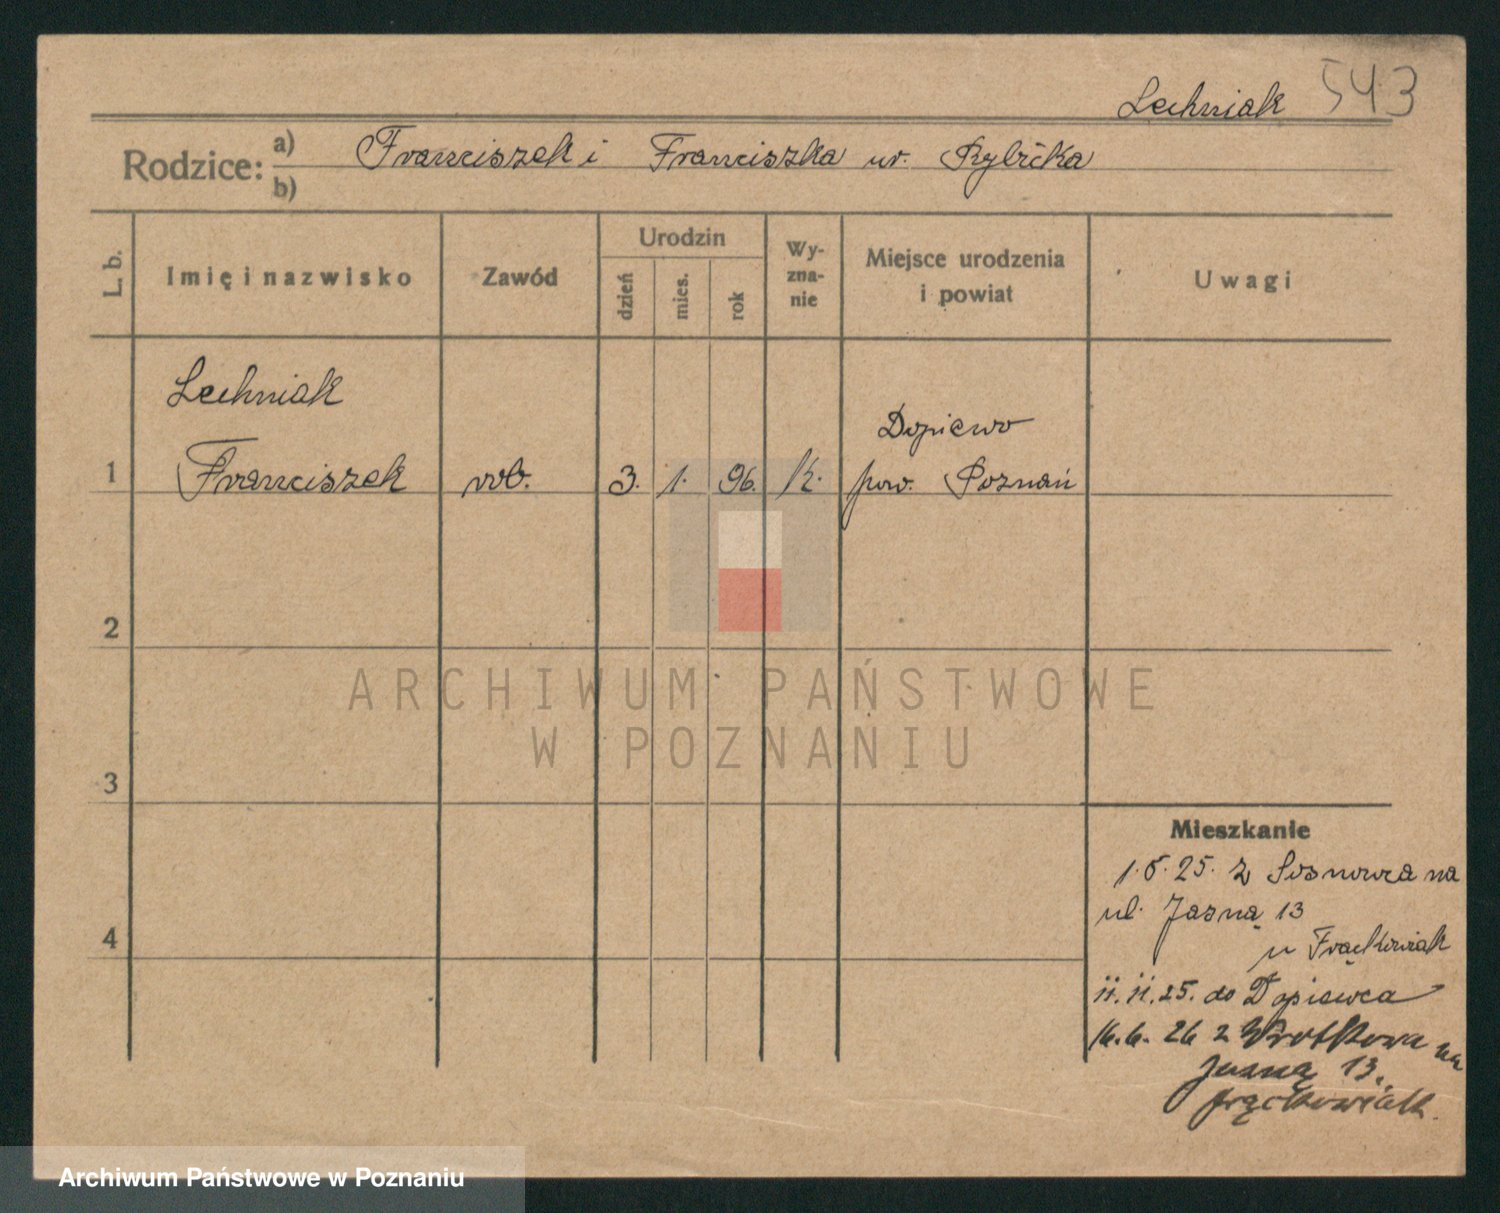 Lechniak 543
Rodzice: a) Franciszek i Franciszka ur. Rybicka
b)
L. b.
Imię i nazwisko
Zawód
Urodzin
dzień
mies.
rok
Wy-
zna-
nie
Miejsce urodzenia
i powiat
Uwagi
Lechniak
Dopiewo
1 Franciszek rob. 3. 1. 96. k. pow. Poznań
2
3
4
Mieszkanie
1.5.25. z Sosnowca na
ul. Jasną 13
u Frąckowiak
11.11.25. do Dopiewca
16.6.26 z Wrotkowa na
Jasną 13.
Frąckowiak.
ARCHIWUM PAŃSTWOWE
W POZNANIU
Archiwum Państwowe w Poznaniu